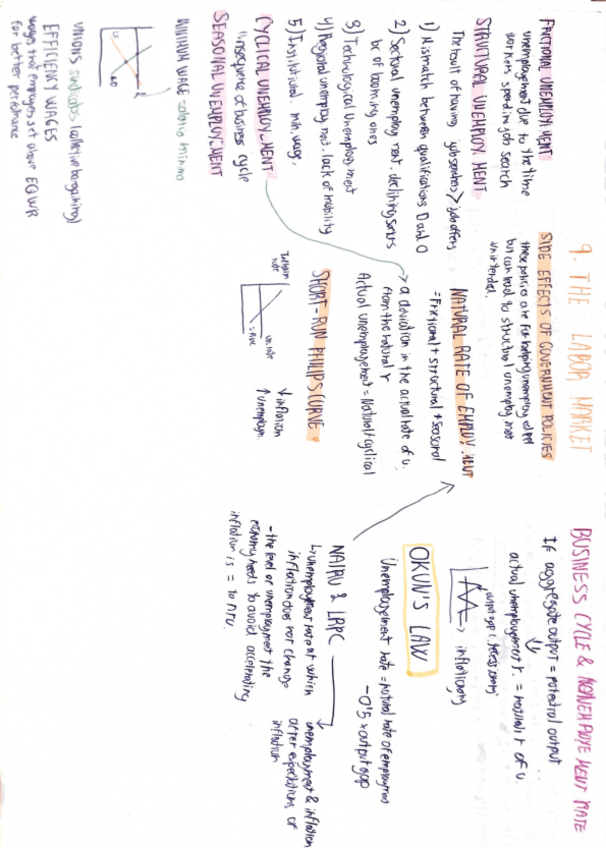 9. THE LABOR MARKET
FRICTIONAL UNEMPLOYMENT
unemployment due to the time
workers spend in job search
STRUCTURAL UNEMPLOYMENT
The result of having job seekers > job offers
1) Mismatch between qualifications D and O
2) Sectoral unemployment. declining secors
bc of booming ones
3) Technological Unemployment
4) Regional unemployment. lack of mobility
5) Institutional. min. wage,
CYCLICAL UNEMPLOYMENT
Consequence of business cycle
SEASONAL UNEMPLOYMENT
MINIMUM WAGE salario mínimo
UNIONS sindicatos (collective bargaining)
EFFICIENCY WAGES
wages that employers set above EQ WR
for better performance
SIDE EFFECTS OF GOVERNMENT POLICIES
these policies are for helping unemployed ppl
but can lead to structural unemployment
unintended.
NATURAL RATE OF EMPLOYMENT
= Frictional + structural + seasonal
a deviation in the actual rate of u.
from the natural r
Actual unemployment = Natural + cyclical
SHORT-RUN PHILIPS CURVE
un. rate
SRPC
↓ inflation
↑ unemploym.
BUSINESS CYCLE &
If aggregate output = potential output
actual unemployment r. = natural r of u.
> inflationary
OKUN'S LAW
Unemployment rate = natural rate of employment
-0'5 x output gap
NAIRU & LRPC
unemployment rate at which
inflation does not change
- the level of unemployment the
economy needs to avoid accelerating
inflation is = to nru.
unemployment & inflation
after expectations of
inflation